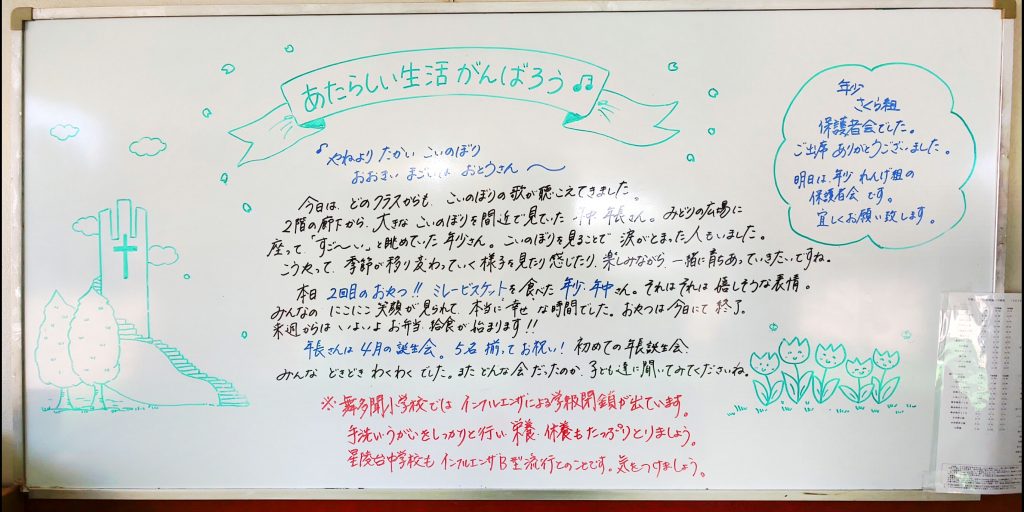 あたらしい生活がんばろう♫
♪やねより たかい こいのぼり
おおきい まごいは おとうさん 〜
今日は、どのクラスからも、こいのぼりの歌が聴こえてきました。
2階の廊下から、大きな こいのぼりを間近で見ていた 年中 年長さん。みどりの広場に
座って「すご〜い」と眺めていた 年少さん。こいのぼりを見ることで 涙がとまった人もいました。
こうやって、季節が移り変わっていく様子を見たり感じたり、楽しみながら、一緒に育ちあっていきたいですね。
本日 2回目のおやつ!! ミレービスケットを食べた 年少、年中さん。それはそれは 嬉しそうな表情。
みんなの にこにこ 笑顔が見られて、本当に "幸せ" な時間でした。おやつは今日にて 終了。
来週からは いよいよ お弁当・給食が始まります!!
年長さんは 4月の誕生会。5名 揃ってお祝い! 初めての年長誕生会
みんな どきどき わくわくでした。また どんな会だったのか、子ども達に聞いてみてくださいね。
※ 舞多聞小学校では インフルエンザによる学級閉鎖が出ています。
手洗い・うがいをしっかりと行い 栄養・休養もたっぷりとりましょう。
星陵台中学校も インフルエンザB型流行とのことです。気をつけましょう。
年少
さくら組
保護者会でした。
ご出席 ありがとうございました。
明日は、年少 れんげ組の
保護者会です。
宜しくお願い致します。